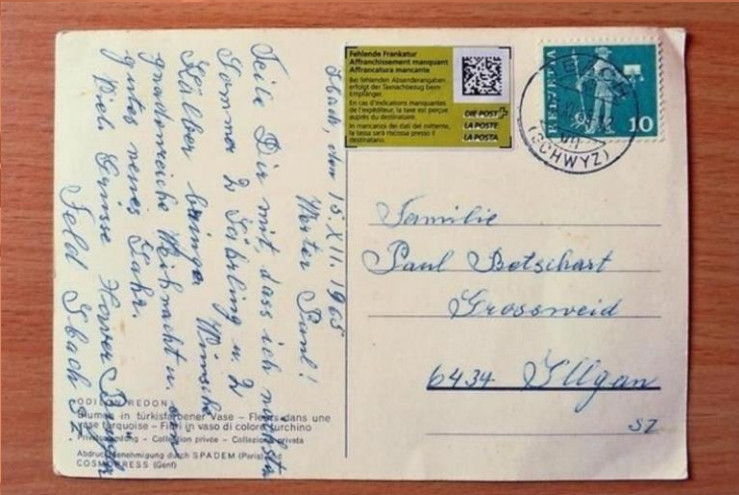 Fehlende Frankatur
Affranchissement manquant
Affrancatura mancante
Bei fehlenden Absenderangaben,
erfolgt der Taxnachbezug beim
Empfänger.
En cas d'indications manquantes
de l'expéditeur, la taxe est perçue
auprès du destinataire.
In mancanza dei dati del mittente,
la tassa sarà riscossa presso il
destinatario.
DIE POST
LA POSTE
LA POSTA
HELVETIA
10
(SCHWYZ)
Ibach, den 15. XII. 1965
Werter Paul!
Teile Dir mit, dass ich nächsten
Sommer 2 Jährling u. 2
Kälber bringe. Wünsche
gnadenreiche Weihnacht u. ein
gutes neues Jahr.
Viele Grüsse
Feld Ibach SZ.
Familie
Paul Betschart
Grossweid
6434 Illgau
SZ
ODILON REDON
Blumen in türkisfarbener Vase – Fleurs dans une
vase turquoise – Fiori in vaso di colore turchino
Privatsammlung – Collection privée – Collezione privata
Abdruckgenehmigung durch SPADEM (Paris) und
COSMOPRESS (Genf)